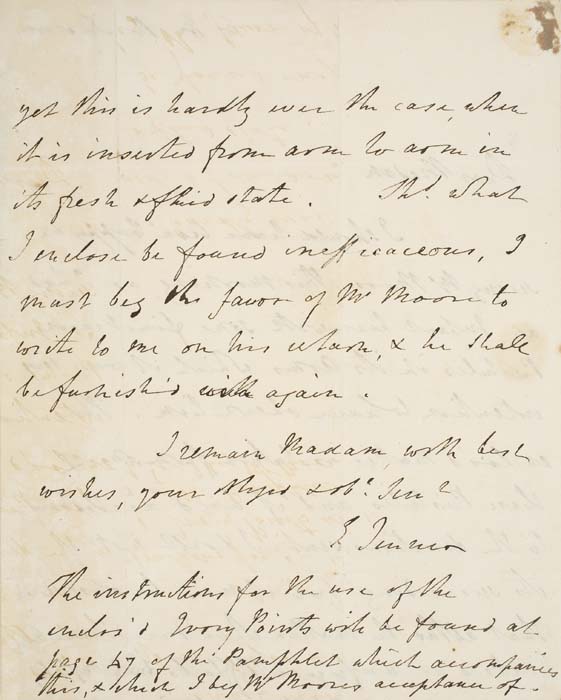 yet this is hardly ever the case, when
it is inserted from arm to arm in
its fresh & fluid state. Shd. what
I enclose be found inefficaceous, I
must beg the favor of Mr Moore to
write to me on his return, & he shall
be furnish'd with again.
I remain Madam, with best
wishes, your & obt. Sert
E Jenner
The instructions for the use of the
enclos'd Ivory Points will be found at
page 47 of the Pamphlet which accompanies
this, & which I beg Mr Moores acceptance of.